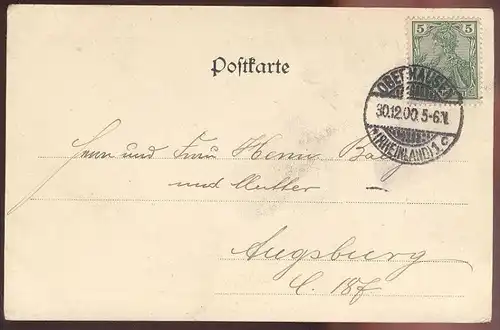 Postkarte
5 5
OBERHAUSEN
30.12.00. 5-6.N.
(RHEINLAND) 1 c
Herrn und Frau Herm.
und Mutter
Augsburg
C. 187